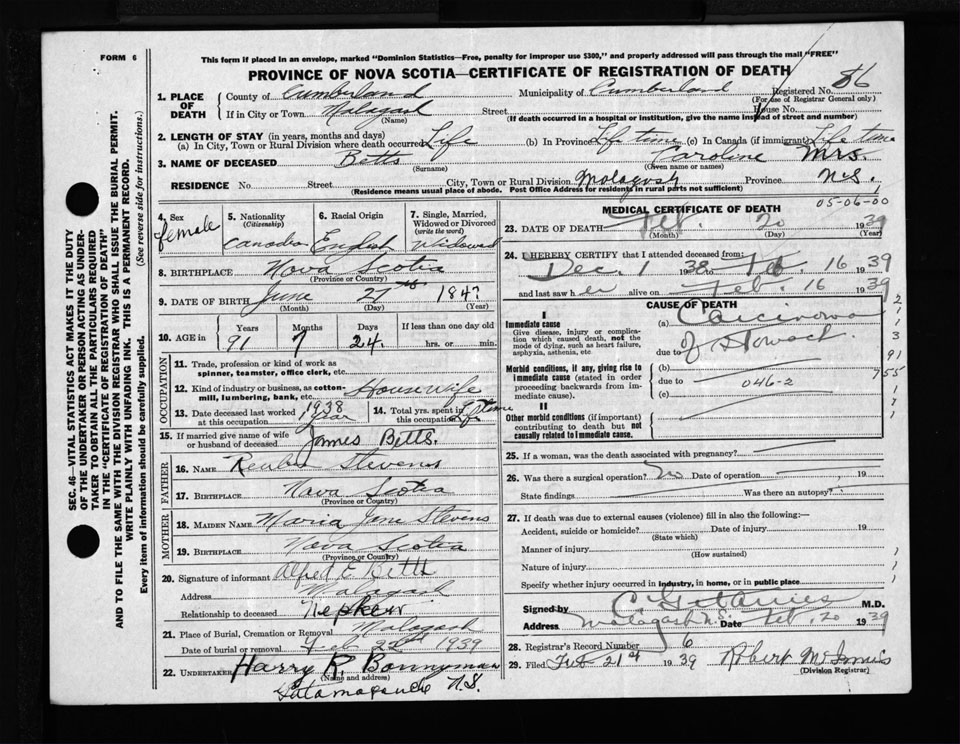 FORM 6
This form if placed in an envelope, marked "Dominion Statistics—Free, penalty for improper use $300," and properly addressed will pass through the mail "FREE"
PROVINCE OF NOVA SCOTIA—CERTIFICATE OF REGISTRATION OF DEATH
Registered No. 86
(For use of Registrar General only)
1. PLACE OF DEATH
County of Cumberland Municipality of Cumberland
If in City or Town Malagash Street House No.
(Name) (If death occurred in a hospital or institution, give the name instead of street and number)
2. LENGTH OF STAY (in years, months and days)
(a) In City, Town or Rural Division where death occurred Life (b) In Province Life time (c) In Canada (if immigrant) Life time
3. NAME OF DECEASED Betts Caroline Mrs.
(Surname) (Given name or names)
RESIDENCE No. Street City, Town or Rural Division Malagash Province N.S.
(Residence means usual place of abode. Post Office Address for residents in rural parts not sufficient)
05-06-00
SEC. 46—VITAL STATISTICS ACT MAKES IT THE DUTY
OF THE UNDERTAKER OR PERSON ACTING AS UNDER-
TAKER TO OBTAIN ALL THE PARTICULARS REQUIRED
IN THE "CERTIFICATE OF REGISTRATION OF DEATH"
AND TO FILE THE SAME WITH THE DIVISION REGISTRAR WHO SHALL ISSUE THE BURIAL PERMIT.
WRITE PLAINLY WITH UNFADING INK. THIS IS A PERMANENT RECORD.
Every item of information should be carefully supplied. (See reverse side for instructions.)
4. Sex female
5. Nationality (Citizenship) Canadian
6. Racial Origin English
7. Single, Married, Widowed or Divorced (write the word) Widowed
8. BIRTHPLACE Nova Scotia
(Province or Country)
9. DATE OF BIRTH June 27th 1847
(Month) (Day) (Year)
10. AGE in Years 91 Months 7 Days 24 If less than one day hrs. or min.
OCCUPATION
11. Trade, profession or kind of work as spinner, teamster, office clerk, etc.
12. Kind of industry or business, as cotton-mill, lumbering, bank, etc. Housewife
13. Date deceased last worked at this occupation 1938
14. Total yrs. spent in this occupation Life time
15. If married give name of wife or husband of deceased James Betts.
FATHER
16. NAME Reuben Stevens
17. BIRTHPLACE Nova Scotia
(Province or Country)
MOTHER
18. MAIDEN NAME Maria Jane Stevens
19. BIRTHPLACE Nova Scotia
(Province or Country)
20. Signature of informant Alfred E Betts
Address Malagash
Relationship to deceased Nephew
21. Place of Burial, Cremation or Removal Malagash
Date of burial or removal Feb 22nd 1939
22. UNDERTAKER Harry R. Bonnyman
(Name and address)
Tatamagouche N.S.
MEDICAL CERTIFICATE OF DEATH
23. DATE OF DEATH Feb. 20 1939
(Month) (Day) (Year)
24. I HEREBY CERTIFY that I attended deceased from:
Dec. 1 1938 to Feb. 16 1939
and last saw her alive on Feb. 16 1939
CAUSE OF DEATH
I
Immediate cause
Give disease, injury or complication which caused death, not the mode of dying, such as heart failure, asphyxia, asthenia, etc
(a) Carcinoma
due to of Stomach
Morbid conditions, if any, giving rise to immediate cause (stated in order proceeding backwards from immediate cause).
(b)
due to 046-2
(c)
II
Other morbid conditions (if important) contributing to death but not causally related to immediate cause.
2
1
1
3
91
755
1
25. If a woman, was the death associated with pregnancy?
26. Was there a surgical operation? No Date of operation 19
State findings Was there an autopsy?
27. If death was due to external causes (violence) fill in also the following:—
Accident, suicide or homicide? Date of injury 19
(State which)
Manner of injury
(How sustained)
Nature of injury
Specify whether injury occurred in industry, in home, or in public place
Signed by M.D.
Address Malagash N.S. Date Feb. 20 1939
28. Registrar's Record Number 6
29. Filed Feb 21st 1939 Robert McInnis
(Division Registrar)